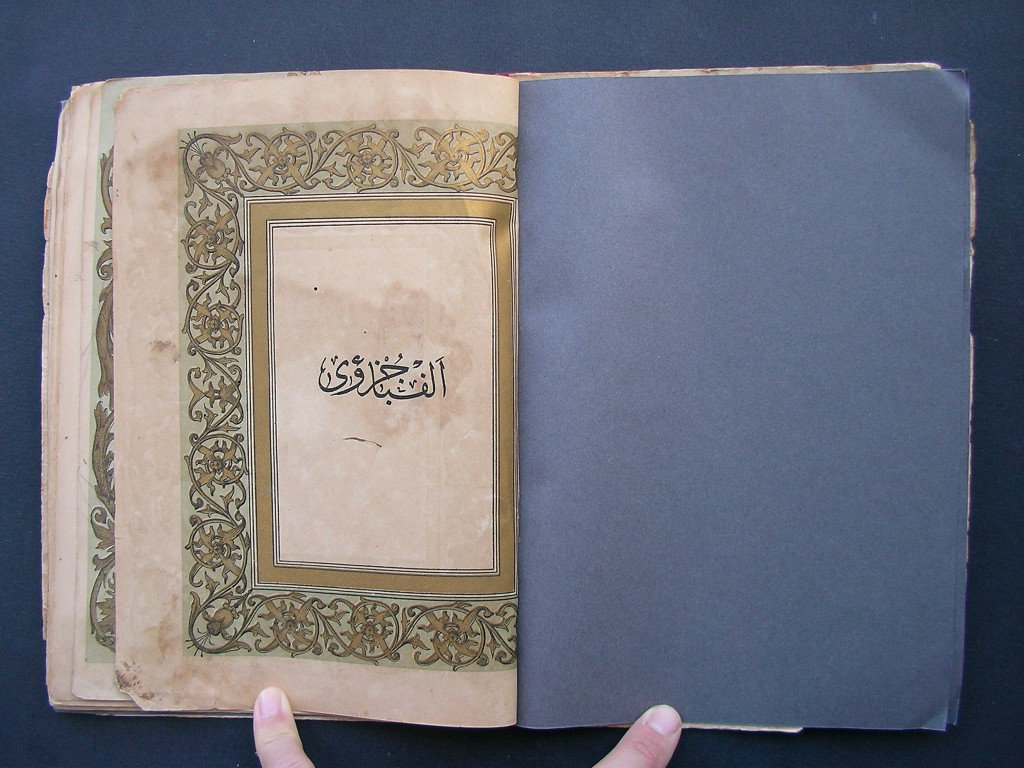 اَلفبا جُزْؤى